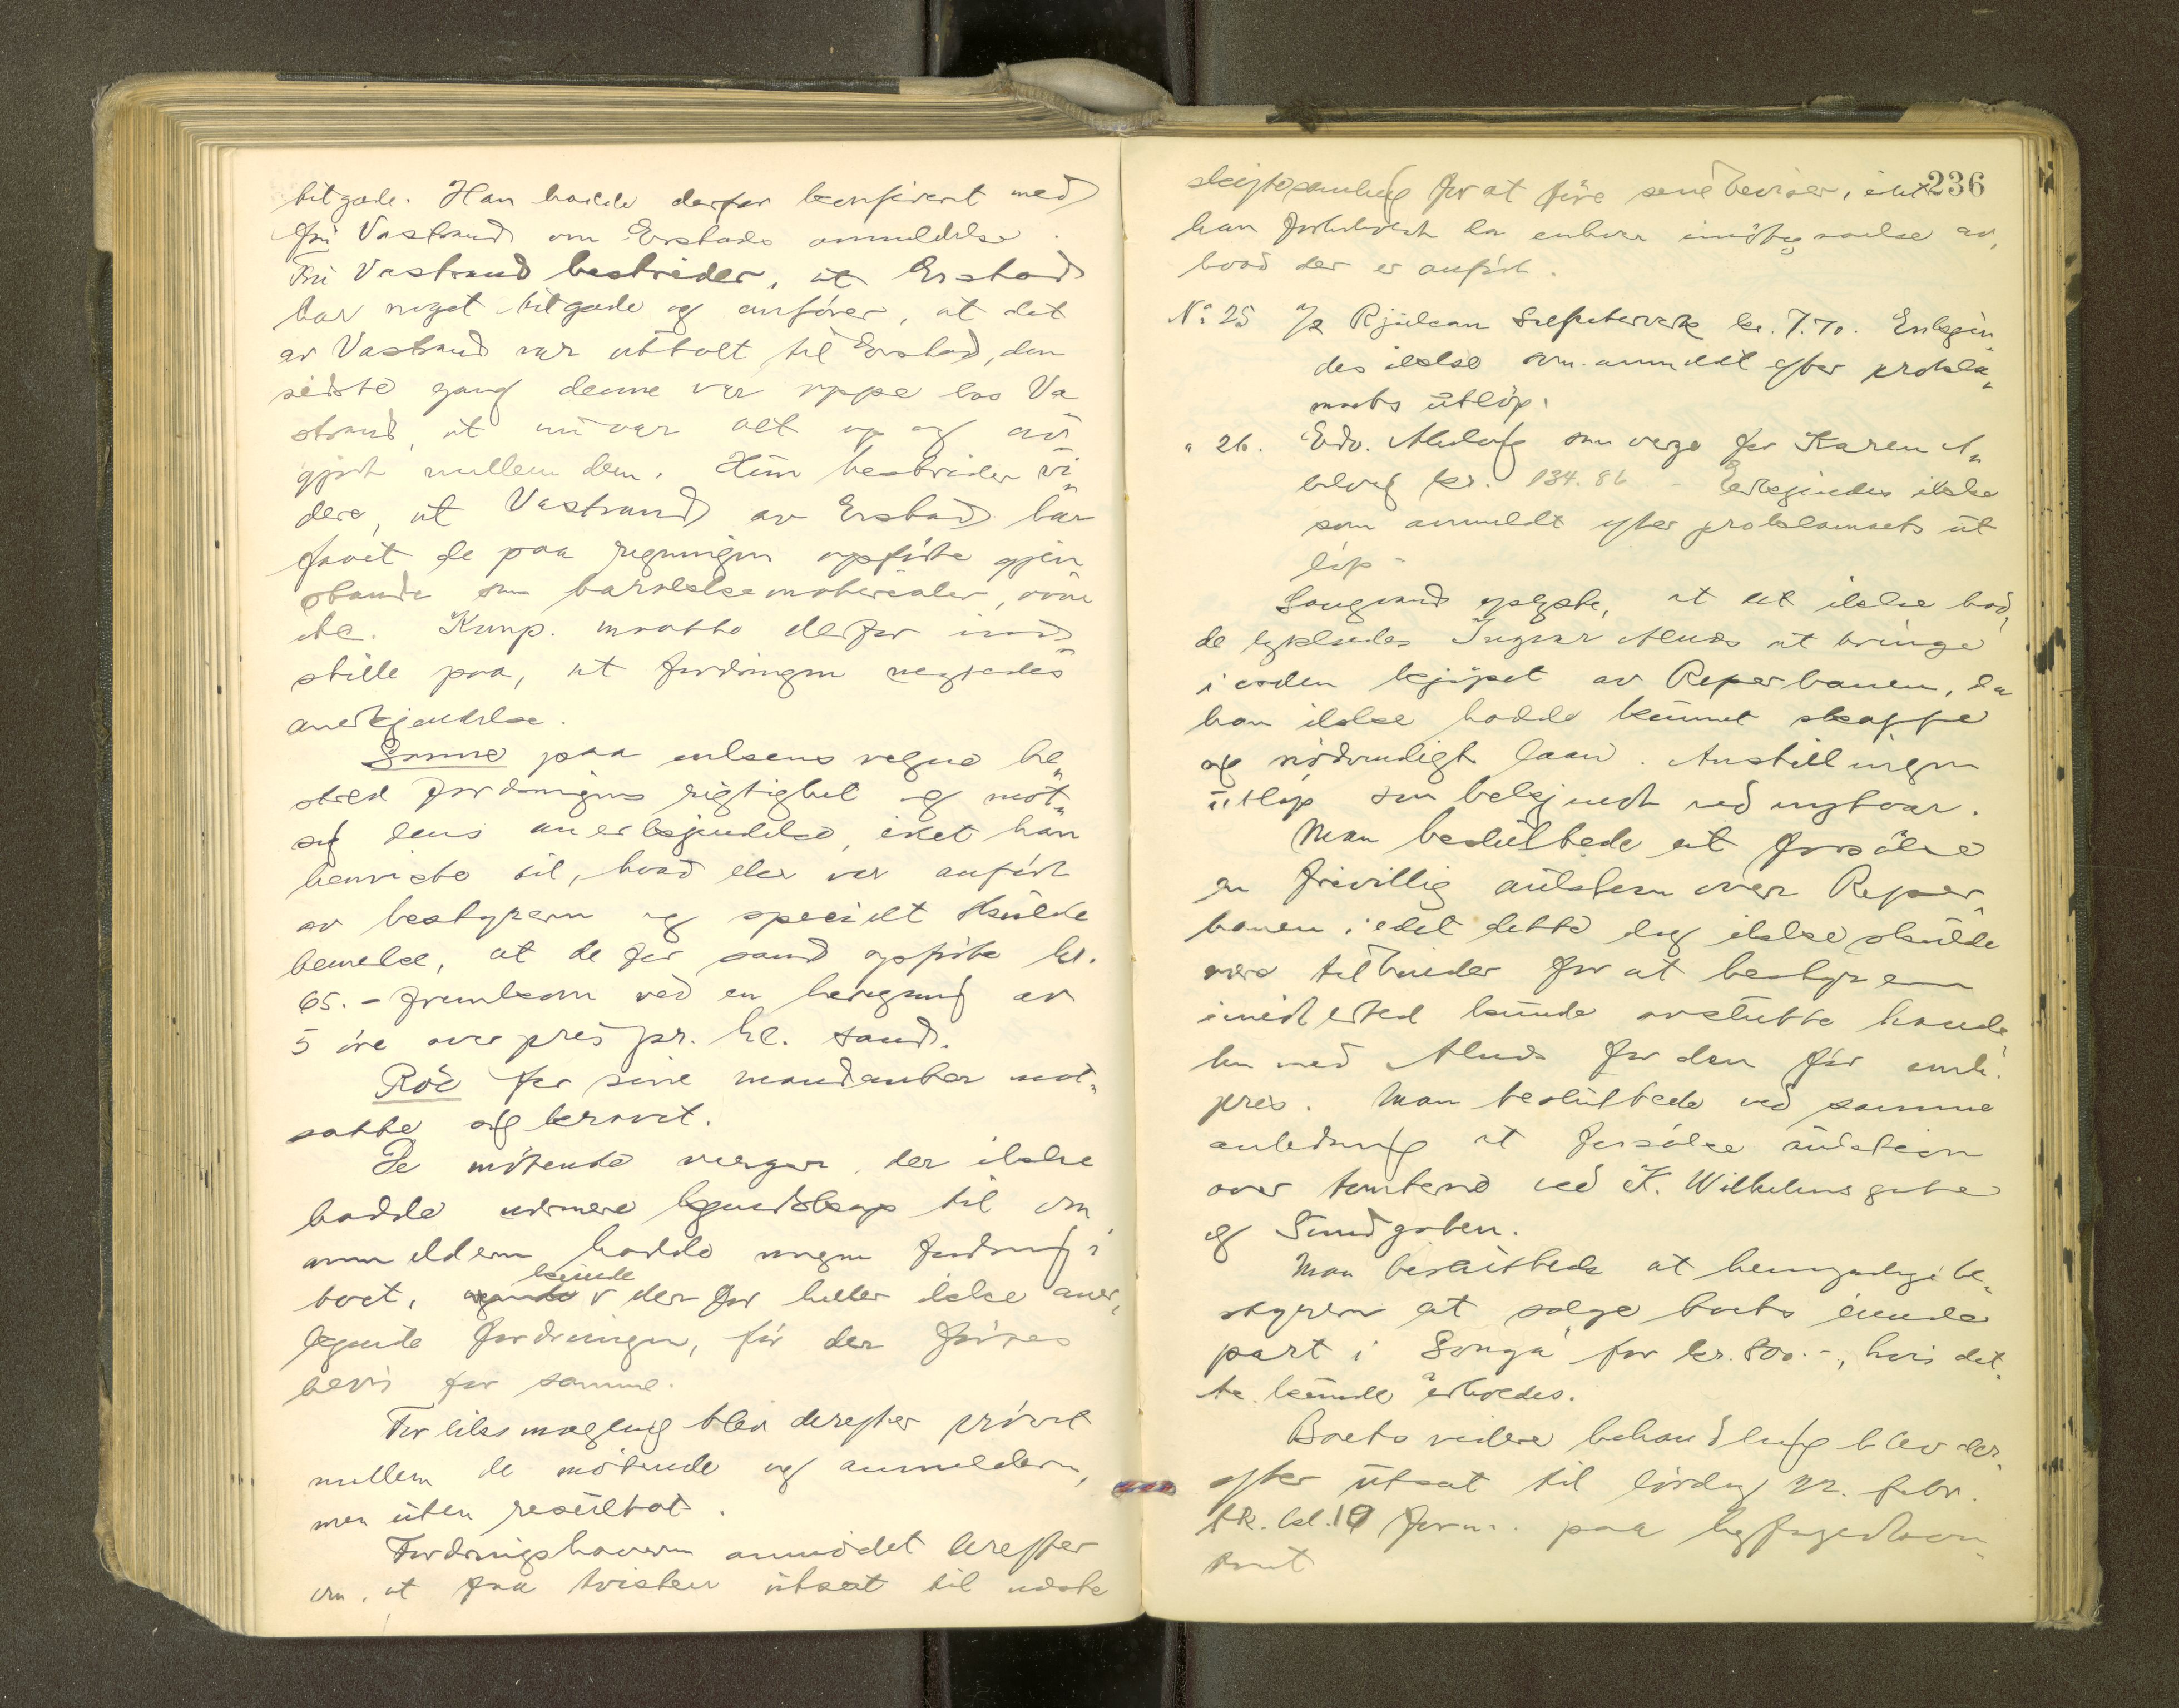 tilgode. Han hadde derfor konferert med
fru Vastrand om Erstads anmeldelse.
Fru Vastrand bestrider, at Erstad
har noget tilgode og anfører, at det
av Vastrand var uttalt til Erstad, den
siste gang denne var oppe hos Va
strand, at nu var alt op og av
gjort mellem dem. Hun bestrider vi„
dere, at Vastrand av Erstad har
faaet de paa regningen opførte gjen
stande som materialer,
Komp. maatte derfor ind
stille paa, at fordringen negtedes
anerkjendelse.
Somme paa egne vegne be„
stred fordringens rigtighet og mot„
sa dens anerkjendelse, idet han
henviste til, hvad der var anført
av bestyreren og specielt skulde
bemerke, at de for sand opførte kr.
65.- fremkom ved en beregning av
5 øre over pris pr. hl. sand.
Röe for sine mandanter mot„
satte og kravet.
De møtende verger, der ikke
hadde nærmere kjendskap til om
anmelderen hadde nogen fordring i
boet, kunde derfor heller ikke aner„
kjende fordringen, før der føres
bevis for samme.
Forliksmægling blev derefter prøvet
mellem de møtende og anmelderen,
men uten resultat.
Fordringshaveren anmodet derefter
om, at faa tvisten utsat til næste
236
skiftesamling for at føre sine beviser, idet
han forbeholdt sig enhver imøtegaaelse av,
hvad der er anført.
No 25 A/S Rjukan Salpeterverk kr. 7.70. Erkjen„
des ikke som anmeldt efter prokla„
maets utløp.
" 26. Edv. Abelvig som verge for Karen A„
belvig kr. 134.86 - Erkjendes ikke
som anmeldt efter proklamaets ut
løp -
Langsand oplyste, at det ikke had„
de lykkedes Ingvar Aluds at bringe
i orden kjøpet av Reperbanen, da
han ikke hadde kunnet skaffe
sig nødvendigt laan. Anstillingen
utløp som bekjendt ved nytaar.
Man besluttede at forsøke
en frivillig auktion over Reper„
banen idet dette dog ikke skulde
være til hinder for at bestyreren
imidlertid kunde avslutte hande„
len med Aluds for den før omh.
pris. Man besluttede ved samme
anledning at forsøke auktion
over tomterne ved K. Wilhelms gate
og Sundgaten.
Man besluttede at bemyndige be„
styreren at sælge boets
part i Songa for kr. 800.-, hvis det„
te kunde erholdes.
Boets videre behandling blev der„
efter utsat til lørdag 22. febr.
kl. 10 form. paa byfogedkon„
toret